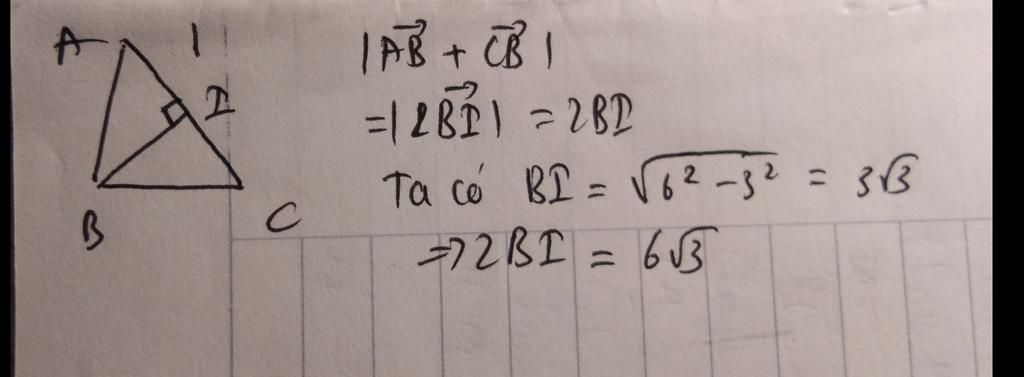 A
I
B
C
|AB⃗ + CB⃗|
=|2BI⃗| = 2BI
Ta có BI = √(6² - 3²) = 3√3
=> 2BI = 6√3